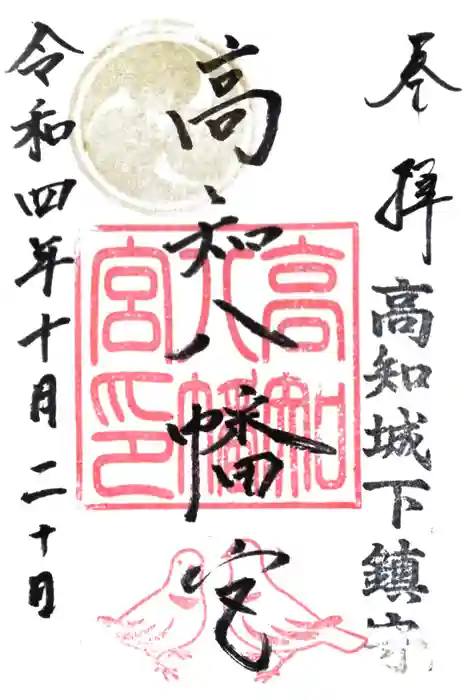 奉拝
高知城下鎮守
高知八幡宮
高知八幡宮印
令和四年十月二十日